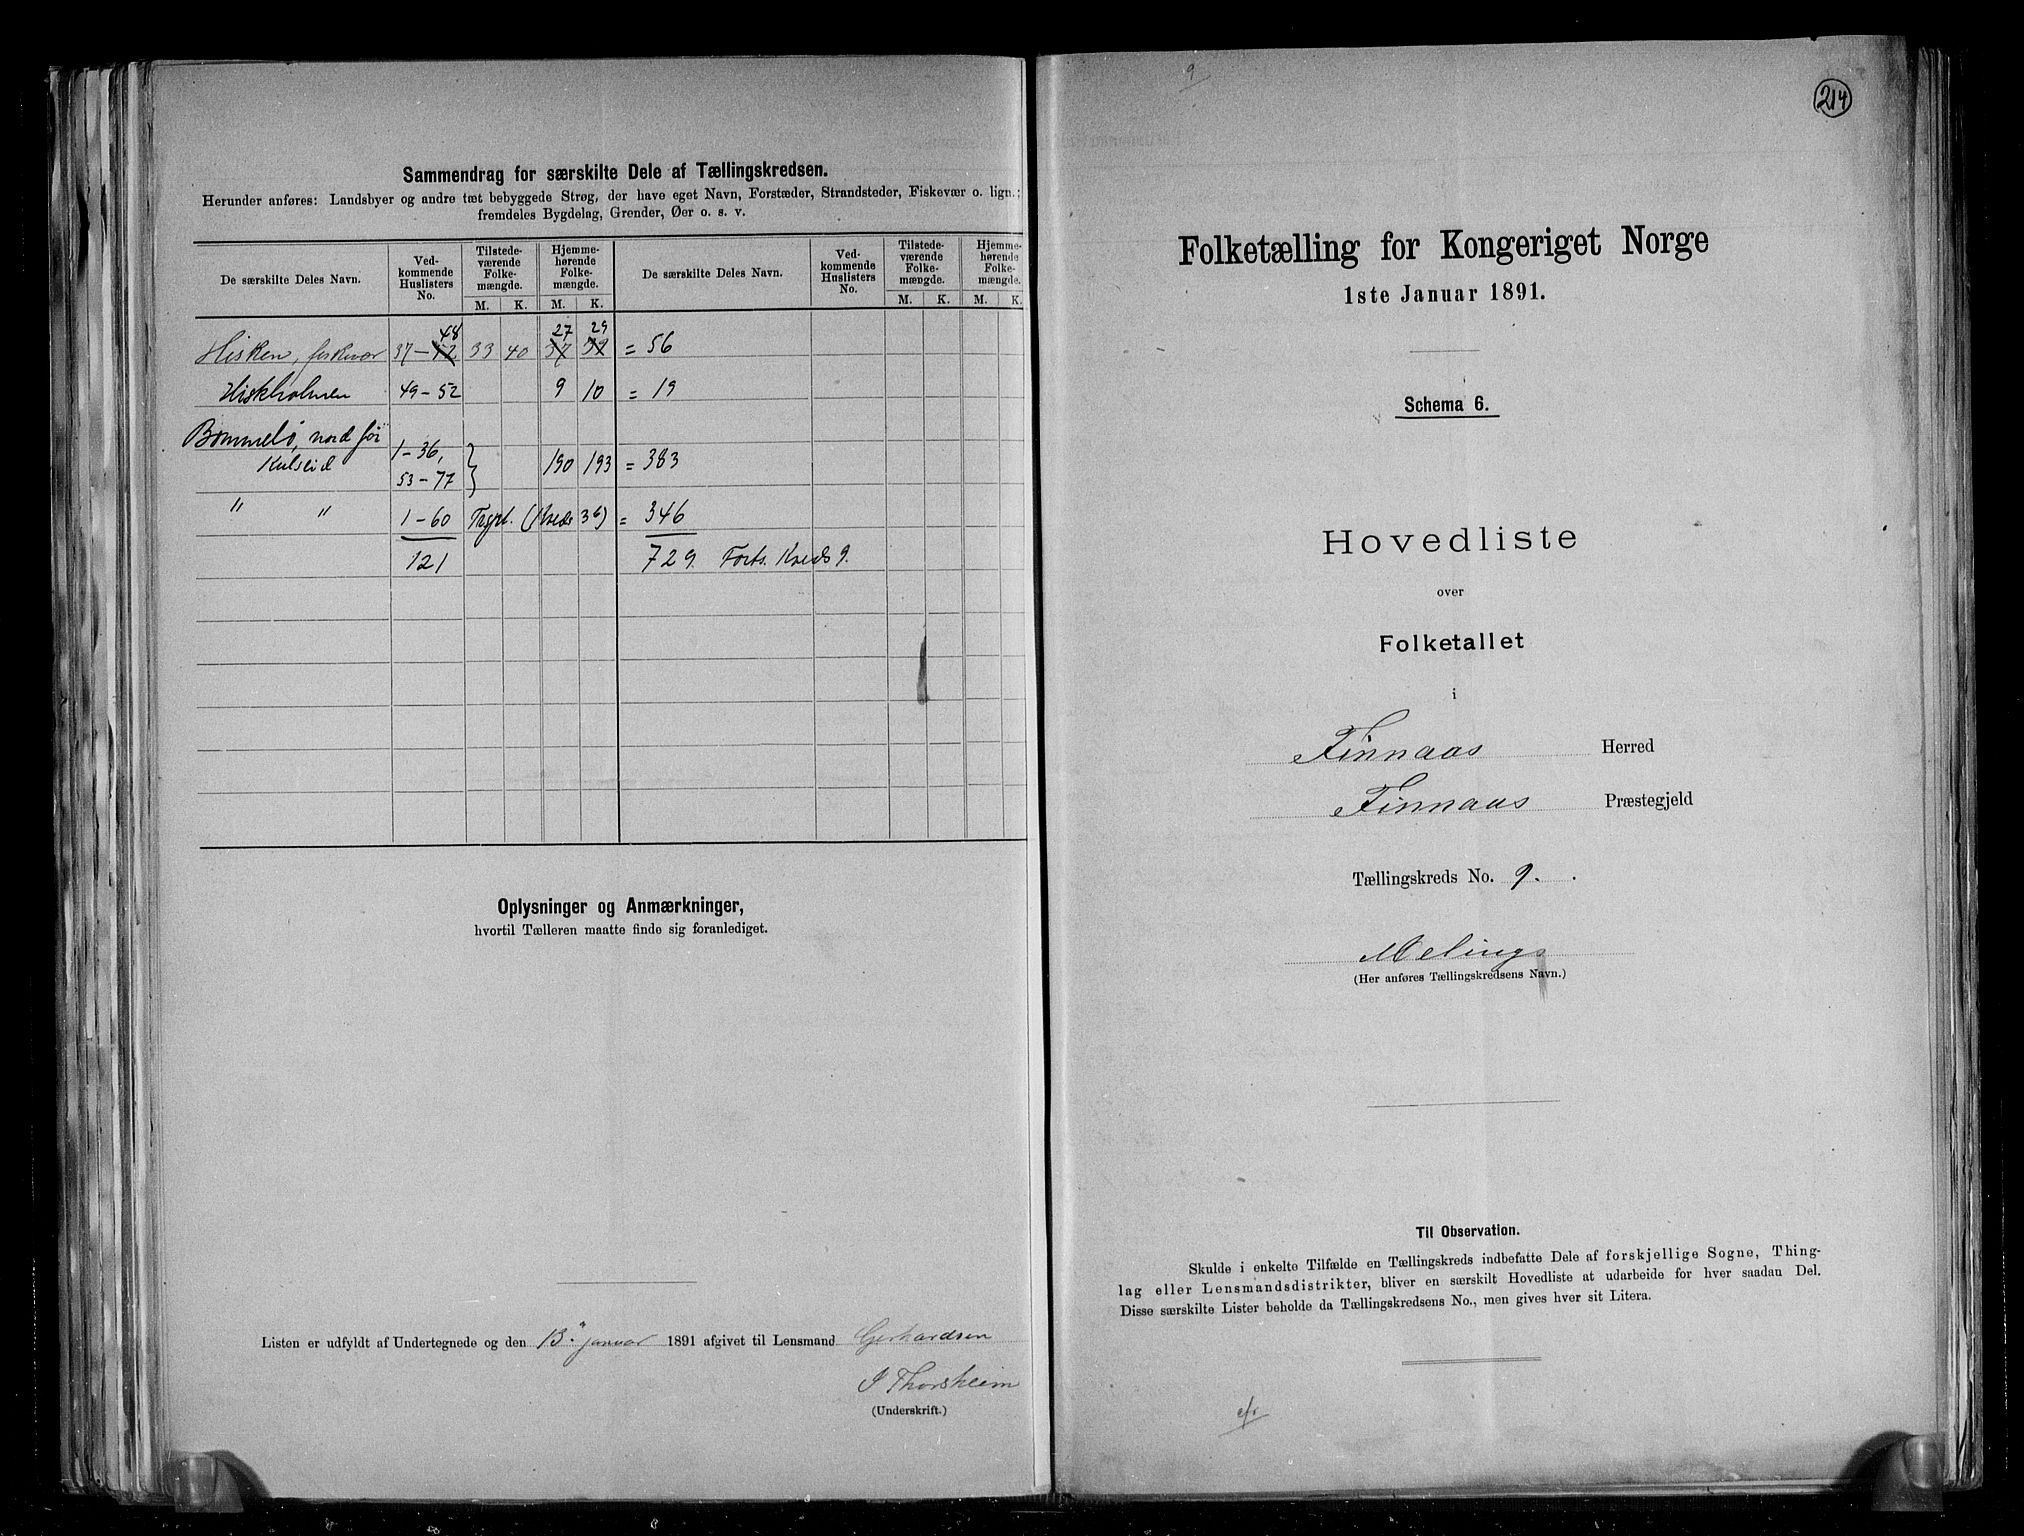 Sammendrag for særskilte Dele af Tællingskredsen.
Herunder anføres: Landsbyer og andre tæt bebyggede Strøg, der have eget Navn, Forstæder, Strandsteder, Fiskevær o. lign.;
fremdeles Bygdelag, Grender, Øer o. s. v.
De særskilte Deles Navn. Ved-kommende Huslisters No. Tilstede-værende Folke-mængde. Hjemme-hørende Folke-mængde. De særskilte Deles Navn. Ved-kommende Huslisters No. Tilstede-værende Folke-mængde. Hjemme-hørende Folke-mængde.
M. K. M. K. M. K. M. K.
48 27 29
Hisken, fiskevær 37-42 33 40 37 39 = 56
Hiskholmen 49-52 9 10 = 19
Bømmelø, nord for
Kulseid 1-36, 53-77 } 190 193 = 383
" " 1-60 (Kreds 36) = 346
121 729 Forts. Kreds 9.
Oplysninger og Anmærkninger,
hvortil Tælleren maatte finde sig foranlediget.
Listen er udfyldt af Undertegnede og den 13de januar 1891 afgivet til Lensmand Gerhardsen
J Thorsheim
(Underskrift.)
9
214
Folketælling for Kongeriget Norge
1ste Januar 1891.
Schema 6.
Hovedliste
over
Folketallet
i
Finnaas Herred
Finnaas Præstegjeld
Tællingskreds No. 9.
Melings
(Her anføres Tællingskredsens Navn.)
Til Observation.
Skulde i enkelte Tilfælde en Tællingskreds indbefatte Dele af forskjellige Sogne, Thing-
lag eller Lensmandsdistrikter, bliver en særskilt Hovedliste at udarbeide for hver saadan Del.
Disse særskilte Lister beholde da Tællingskredsens No., men gives hver sit Litera.